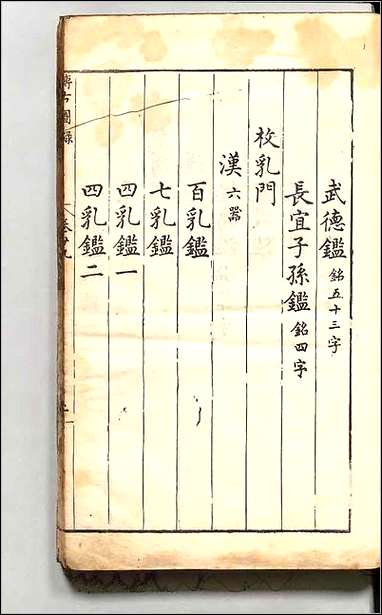 武德鑑 銘五十三字
長宜子孫鑑 銘四字
枚乳門
漢 六器
百乳鑑
七乳鑑
四乳鑑一
四乳鑑二
博古圖錄 卷廿九